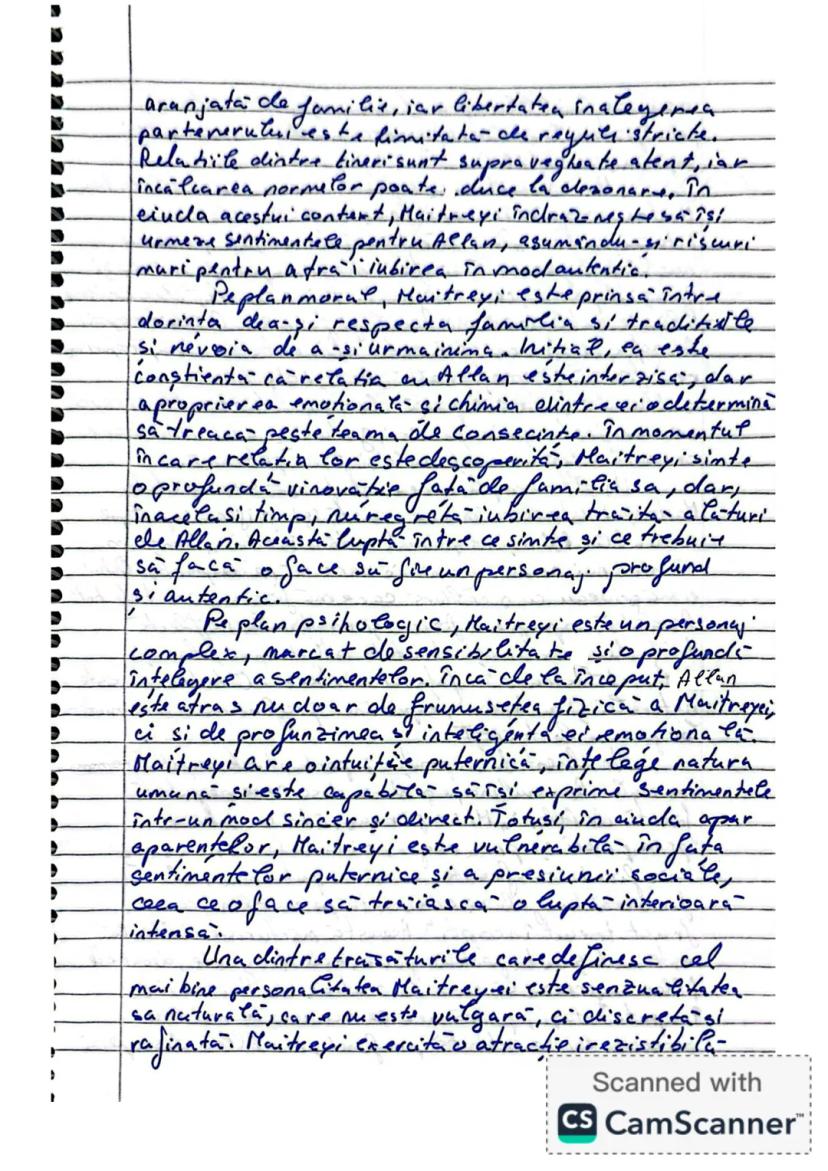 aranjată de familie, iar libertatea în alegerea
partenerului este limitată de reguli stricte.
Relatiile dintre tineri sunt supravegheate atent, iar
încălcarea normelor poate duce la dezonoare. În
ciuda acestui context, Maitreyi îndrăznește să își
urmeze sentimentele pentru Allan, asumîndu-și riscuri
mari pentru a trăi iubirea în mod autentic.
Pe plan moral, Maitreyi este prinsă între
dorinta de a-și respecta familia si traditiile
si nevoia de a-si urma inima. Initial, ea este
conștientă că relatia cu Allan este interzisă, dar
apropierea emotională și chimia dintre ei o determină
să treacă peste teama de consecinte. În momentul
în care relatia lor este descoperită, Maitreyi simte
o profundă vinovăție față de familia sa, dar,
în acelasi timp, nu regretă iubirea trăită alături
de Allan. Această luptă între ce simte și ce trebuie
să facă o face să fie un personaj profund
si autentic.
Pe plan psihologic, Maitreyi este un personaj
complex, marcat de sensibilitate și o profundă
înțelegere a sentimentelor. Încă de la început, Allan
este atras nu doar de frumusetea fizică a Maitreyei,
ci si de profunzimea si inteligenta ei emotională.
Maitreyi are o intuiție puternică, înțelege natura
umană si este capabilă să își exprime sentimentele
într-un mod sincer și direct. Totusi, în ciuda apar
aparențelor, Maitreyi este vulnerabilă în fața
sentimentelor puternice și a presiunii sociale,
ceea ce o face să trăiască o luptă interioară
intensă.
Una dintre trasăturile care definesc cel
mai bine personalitatea Maitreyei este senzualitatea
sa naturală, care nu este vulgară, ci discretă si
rafinată. Maitreyi exercită o atracție irezistibilă
Scanned with
CS CamScanner™